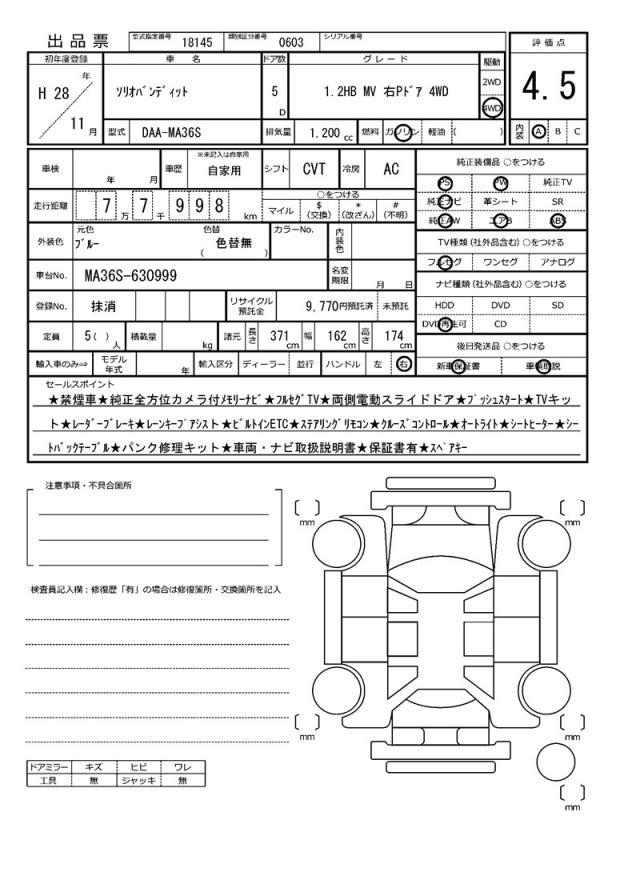 出品票 型式指定番号 18145 類別区分番号 0603 シリアル番号
初年度登録 車名 ドア数 グレード 駆動 評価点
H 28 年 11 月 ソリオバンディット 5 D 1.2HB MV 右Pドア 4WD 2WD 4WD 4.5
型式 DAA-MA36S 排気量 1.200 cc 燃料 ガソリン 軽油 ( ) 内装 A B C
車検 年 月 車歴 ※未記入は自家用 自家用 シフト CVT 冷房 AC 純正装備品 ○をつける
PS PW 純正TV
走行距離 7 万 7 千 9 9 8 km ○をつける マイル $ (交換) * (改ざん) # (不明) 純正ナビ 革シート SR
純正AW エアB ABS
外装色 元色 ブルー 色替 色替無 ( ) カラーNo. 内装色 TV種類 (社外品含む) ○をつける
フルセグ ワンセグ アナログ
車台No. MA36S-630999 名変期限 月 日 ナビ種類 (社外品含む) ○をつける
登録No. 抹消 リサイクル預託金 9,770円預託済 未預託 HDD DVD SD
DVD再生可 CD
定員 5( ) 人 積載量 kg 諸元 長さ 371 cm 幅 162 cm 高さ 174 cm 後日発送品 ○をつける
輸入車のみ⇒ モデル年式 年 輸入区分 ディーラー 並行 ハンドル 左 右 新車保証書 車輌取説
セールスポイント
★禁煙車★純正全方位カメラ付メモリーナビ★フルセグTV★両側電動スライドドア★プッシュスタート★TVキッ
ト★レーダーブレーキ★レーンキープアシスト★ビルトインETC★ステアリングリモコン★クルーズコントロール★オートライト★シートヒーター★シー
トバックテーブル★パンク修理キット★車両・ナビ取扱説明書★保証書有★スペアキー
注意事項・不具合箇所
mm mm
検査員記入欄：修復歴「有」の場合は修復箇所・交換箇所を記入
mm mm
ドアミラー キズ ヒビ ワレ
工具 無 ジャッキ 無
mm